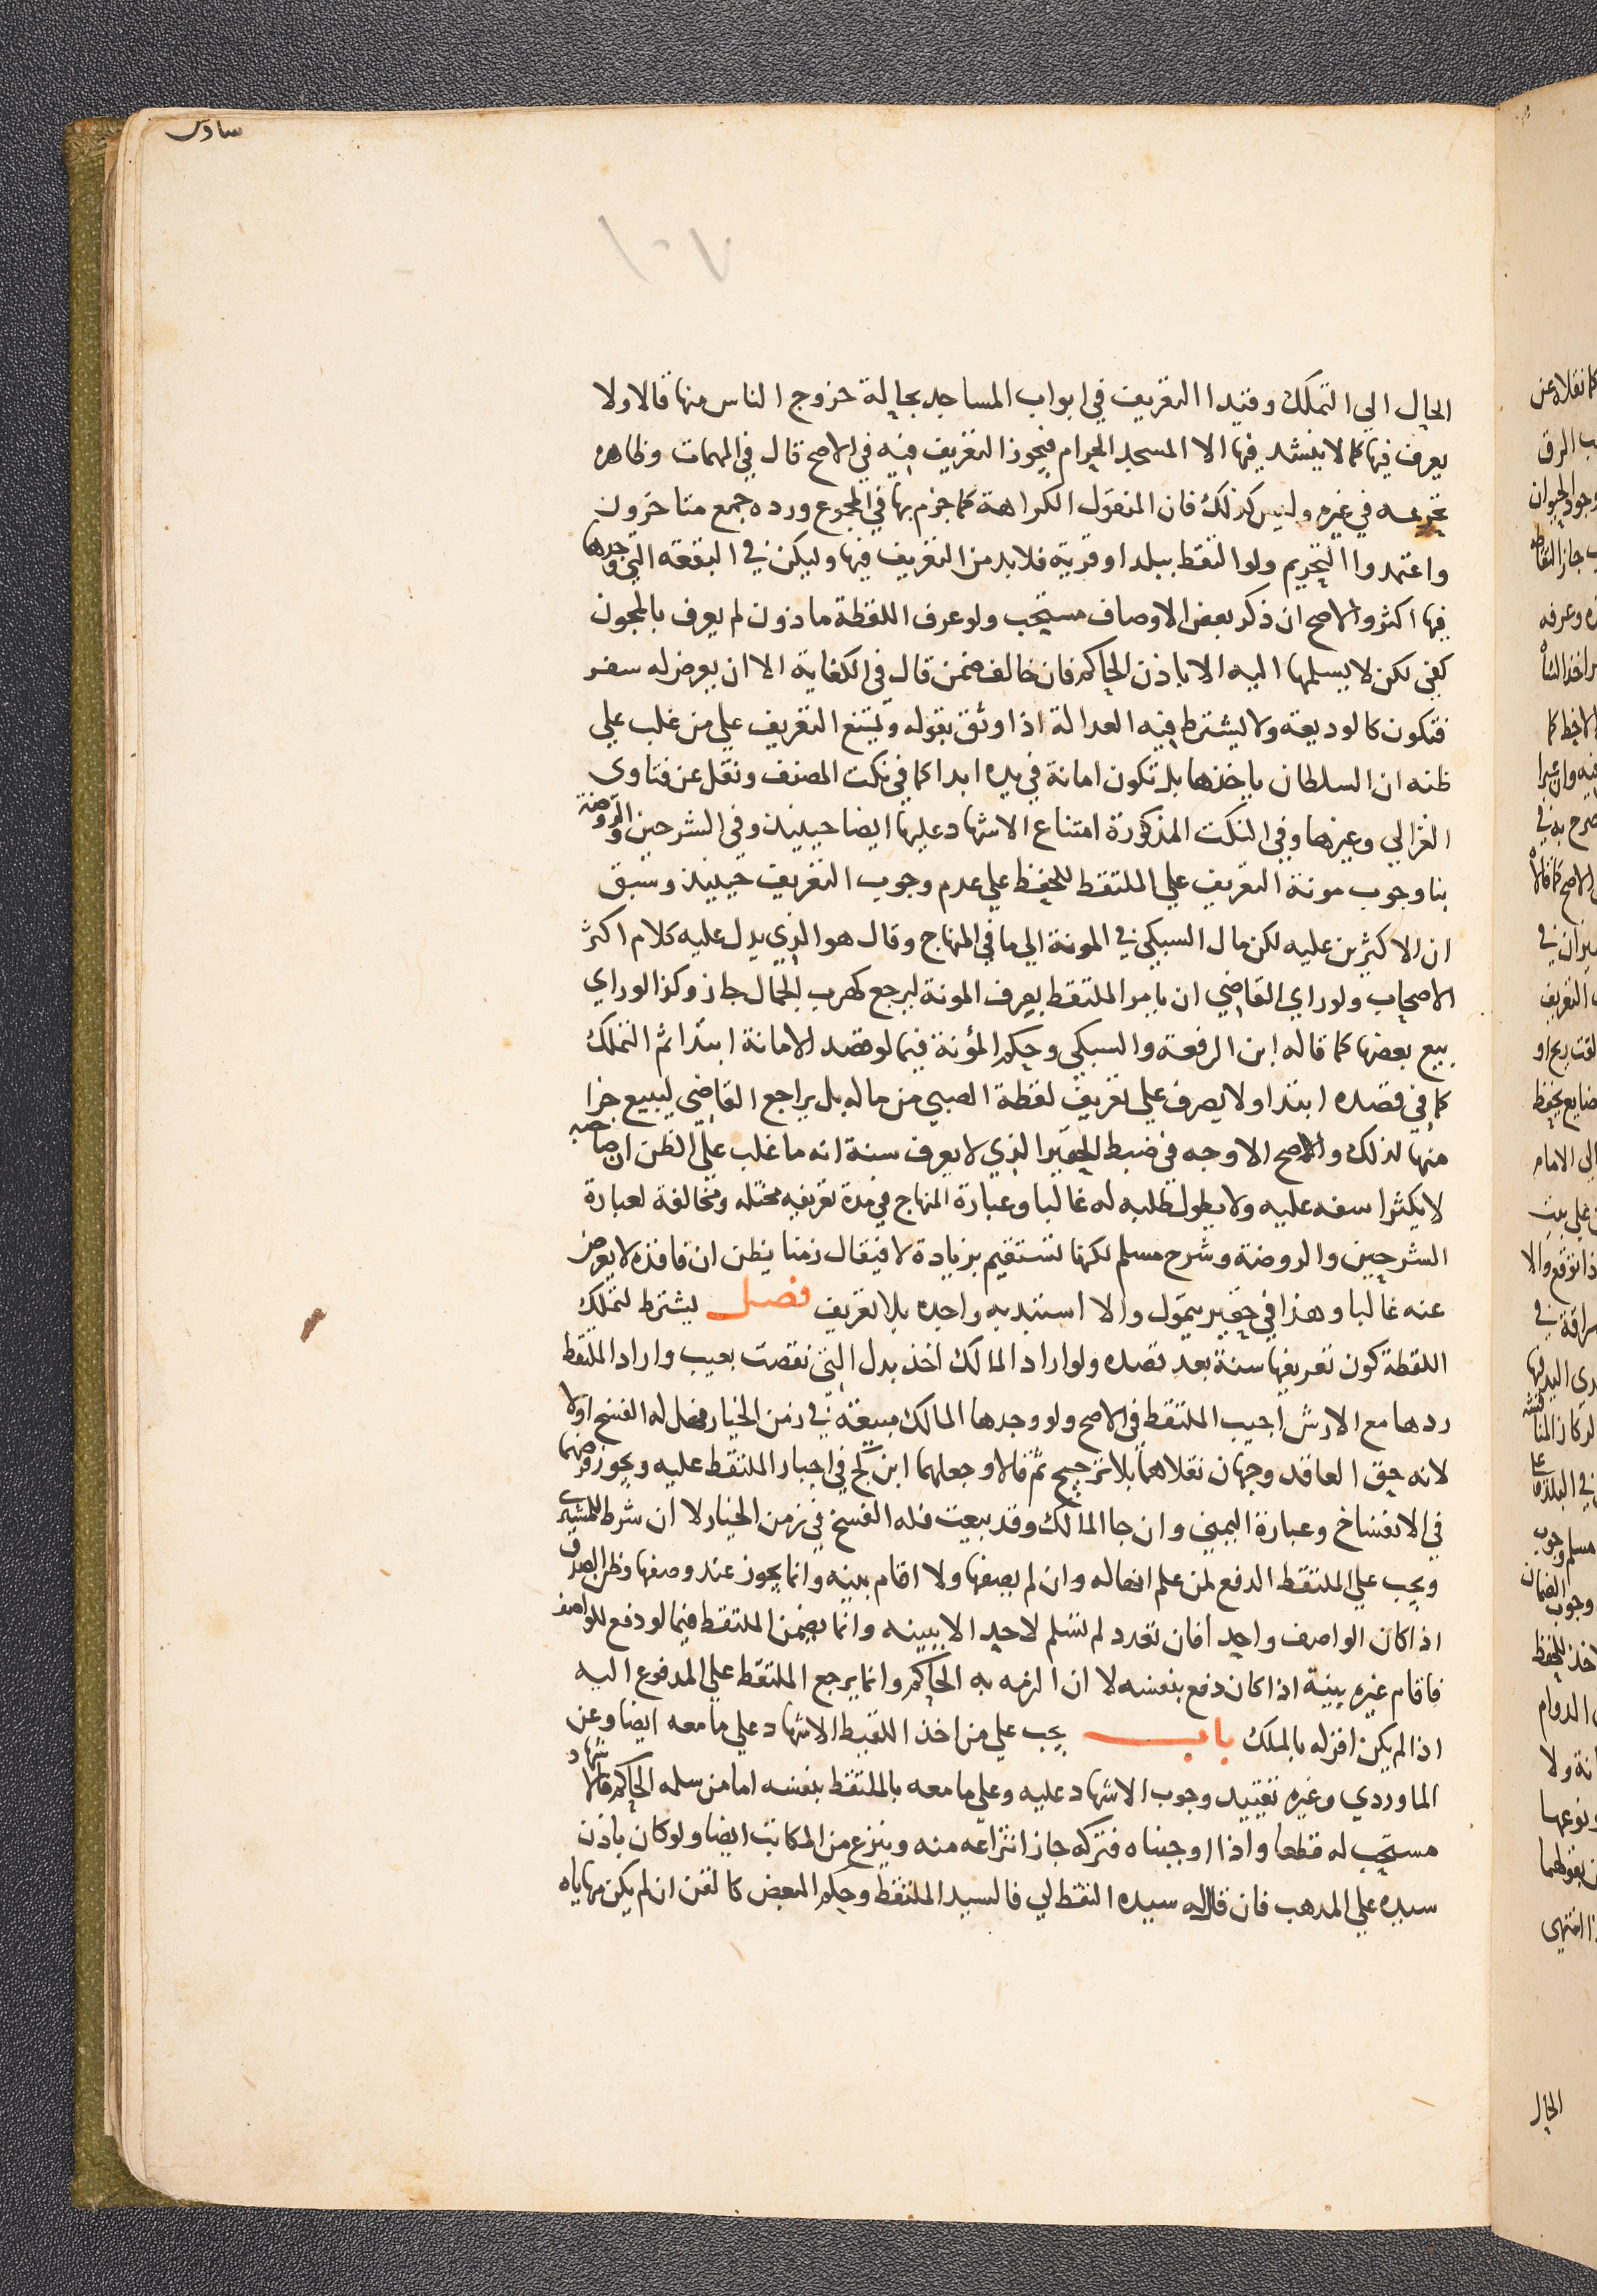 سادس
١٠٧
الحال الى التملك وقيدا التعريف في ابواب المساجد بحالة خروج الناس منها قالا ولا
يعرف فيها كما لا ينشد فيها الا المسجد الحرام فيجوز التعريف فيه في الاصح قال في المهمات وظاهره
تحريمه في غيره وليس كذلك فان المنقول الكراهة كما جزم بها في المجموع ورده جمع متاخرون
واعتمدوا التحريم ولو التقط ببلد او قرية فلا بد من التعريف فيها وليكن في البقعه التي وجدها
فيها اكثر والاصح ان ذكر بعض الاوصاف مستحب ولو عرف اللقطة ماذون لم يعرف بالمجون
كفى لكن لا يسلمها اليه الا باذن الحاكم فان خالف ضمن قال في الكفاية الا ان يعرض له سفر
فتكون كالوديعه ولا يشترط فيه العدالة اذا وثق بقوله ويمتنع التعريف على من غلب على
ظنه ان السلطان ياخذها بل تكون امانة في يده ابدا كما في نكت المصنف ونقل عن فتاوى
الغزالي وغيرها وفي النكت المذكورة امتناع الاشهاد عليها ايضا حينيذ وفي الشرحين والروضة
بنا وجوب مونة التعريف على الملتقط للحفظ على عدم وجوب التعريف حينيذ وسبق
ان الاكثرين عليه لكن مال السبكي في المونة الى ما في المنهاج وقال هو الذي يدل عليه كلام اكثر
الاصحاب ولو راي القاضي ان يامر الملتقط بصرف المونة ليرجع كهرب الجمال جاز وكذا لو راي
بيع بعضها كما قاله ابن الرفعة والسبكي وحكم المؤنة فيما لو قصد الامانة ابتدا ثم التملك
كما في قصده ابتدا ولا يصرف على تعريف لقطة الصبي من ماله بل يراجع القاضي ليبيع جزا
منها لذلك والاصح الاوجه في ضبط الحقير الذي لا يعرف سنة انه ما غلب على الظن ان صاحبه
لا يكثر اسفه عليه ولا يطول طلبه له غالبا وعبارة المنهاج في مدة تعريفه مختله ومخالفة لعبارة
الشرحين والروضة وشرح مسلم لكنها تستقيم بزيادة لا فيقال زمنا يظن ان فاقده لا يعرض
عنه غالبا وهذا في حقير يتمول والا استبد به واجده بلا تعريف فصل يشترط لتملك
اللقطة كون تعريفها سنة بعد قصده ولو اراد المالك اخذ بدل التي نقصت بعيب واراد الملتقط
ردها مع الارش اجيب الملتقط في الاصح ولو وجدها المالك مبيعة في زمن الخيار فهل له الفسخ او لا
لانه حق العاقد وجهان نقلاهما بلا ترجيح ثم قالا وجعلهما ابن كج في اجبار الملتقط عليه ويجوز فرضهما
في الانفساخ وعبارة اليمني وان جا المالك وقد بيعت فله الفسخ في زمن الخيار لا ان شرط للمشتري
ويجب على الملتقط الدفع لمن علم انها له وان لم يصفها ولا اقام بينه وانما يجوز عند وصفها وظن الصدق
اذا كان الواصف واحدا فان تعدد لم تسلم لاحد الا ببينه وانما يضمن الملتقط فيما لو دفع للواصف
فاقام غيره بينة اذا كان دفع بنفسه لا ان الزمه به الحاكم وانما يرجع الملتقط على المدفوع اليه
اذا لم يكن اقر له بالملك باب يجب على من اخذ اللقيط الاشهاد على ما معه ايضا وعن
الماوردي وغيره تقييد وجوب الاشهاد عليه وعلى ما معه بالملتقط بنفسه اما من سلمه الحاكم فالاشهاد
مستحب له قطعا واذا اوجبناه فتركه جاز انتزاعه منه وينزع من المكاتب ايضا ولو كان باذن
سيده على المدهب فان قال له سيده التقط لي فالسيد الملتقط وحكم المبعض كالقن ان لم يكن مهاياه